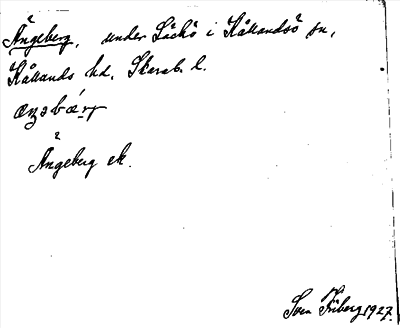 Ängeberg, under Läckö i Kållandsö sn,
Kållands hd. Skarab. l.
Ängeberg ek.
Sven Friberg 1927.